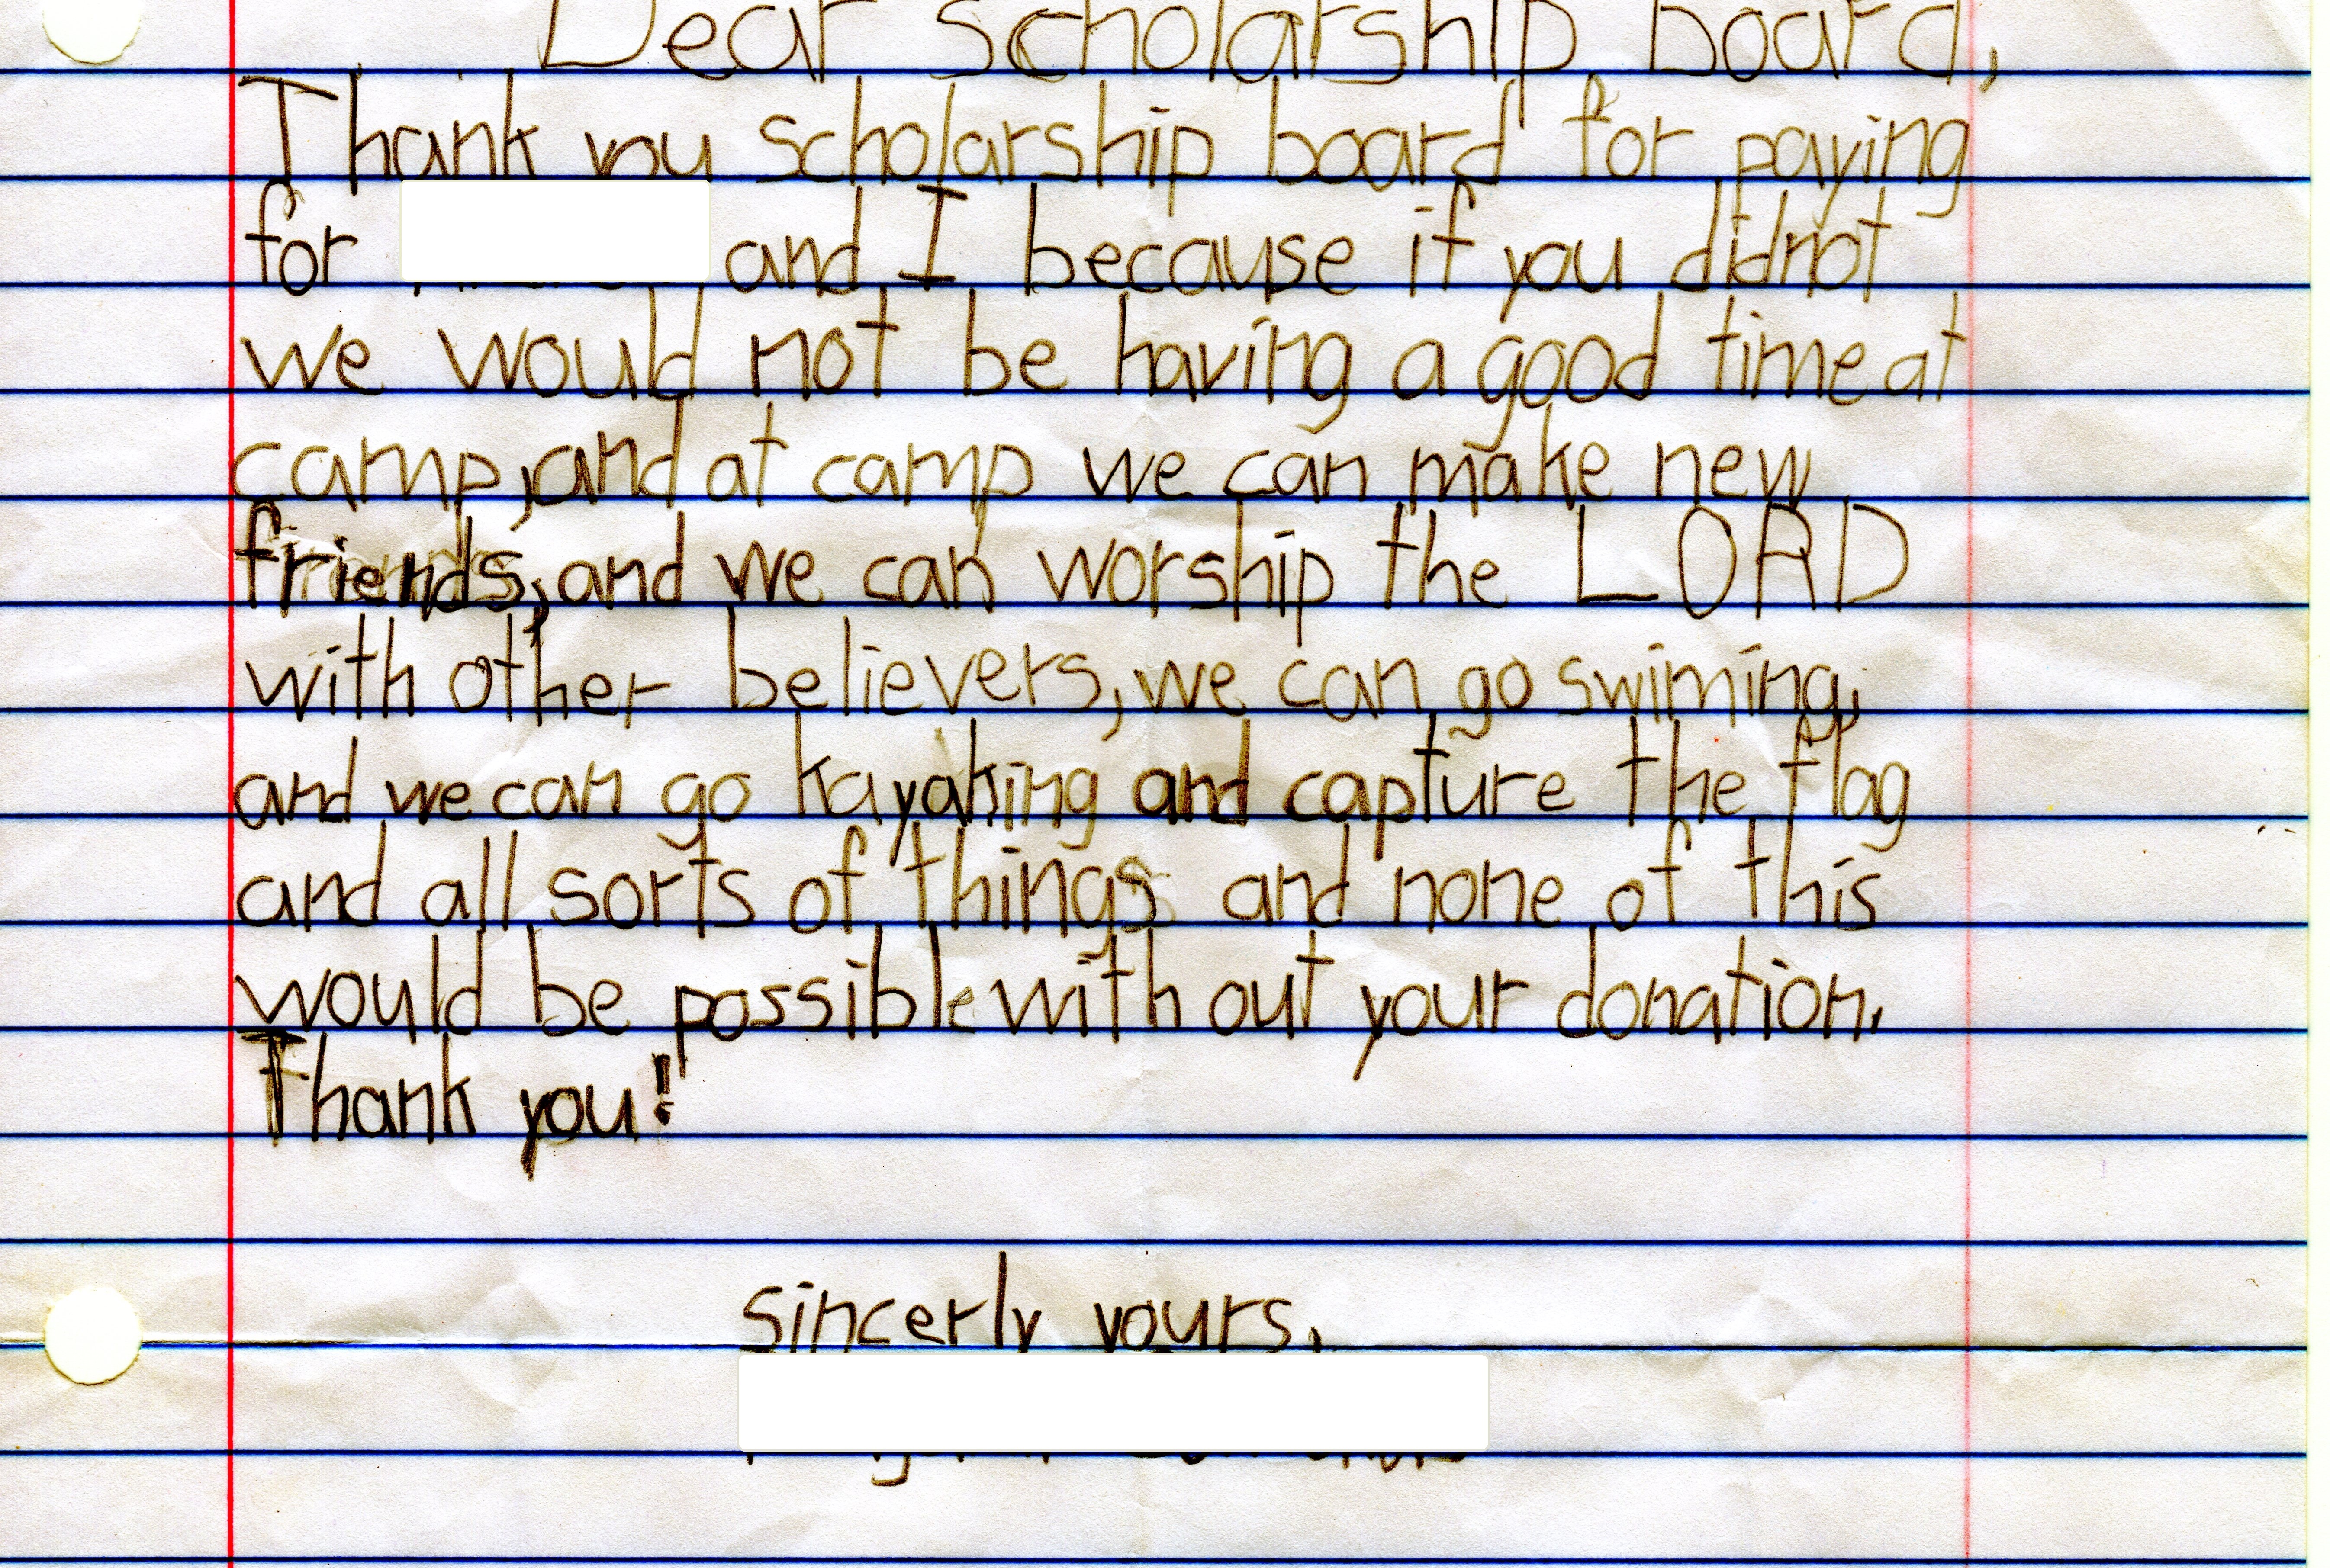 Dear scholarship board,
Thank you scholarship board for paying
for and I because if you didnot
we would not be having a good time at
camp, and at camp we can make new
friends, and we can worship the LORD
with other believers, we can go swiming,
and we can go kayaking and capture the flag
and all sorts of things and none of this
would be possible with out your donation.
Thank you!
sincerly yours,